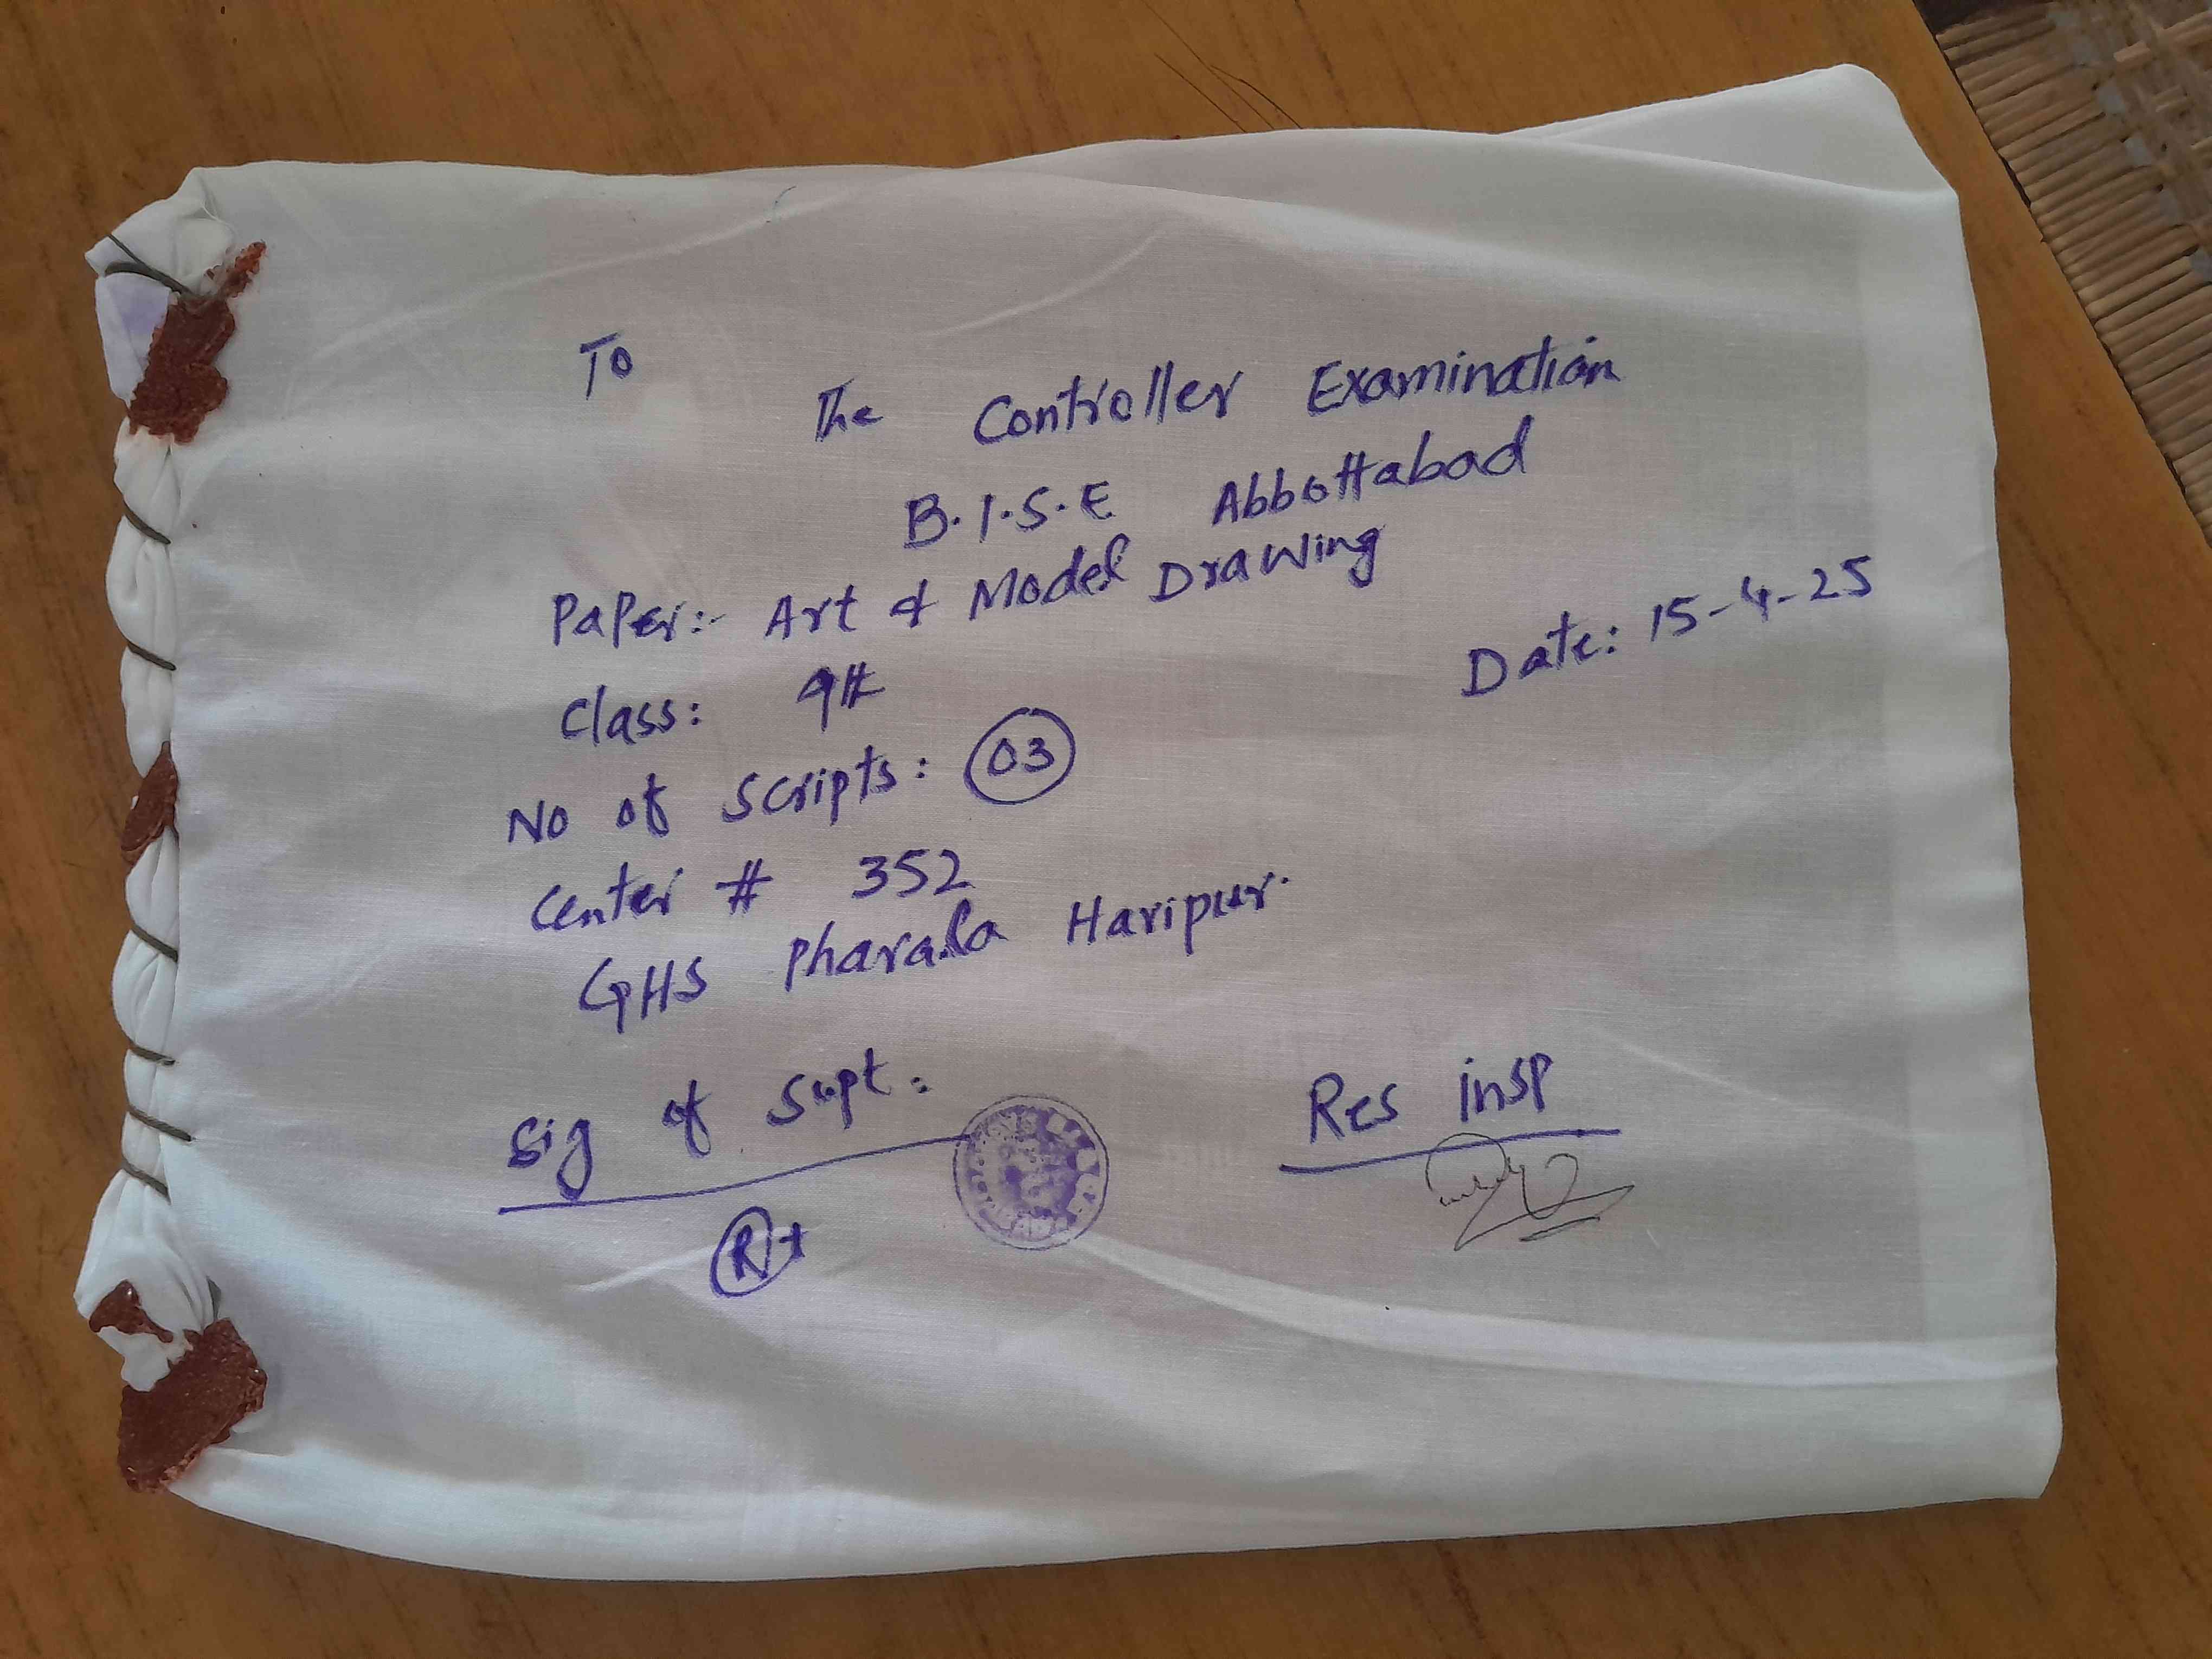 To
The Controller Examination
B.I.S.E Abbottabad
Paper:- Art & Model Drawing
Date: 15-4-25
Class: 9th
No of Scripts: 03
Center # 352
GHS Pharala Haripur.
Sig of Supt:
Res insp